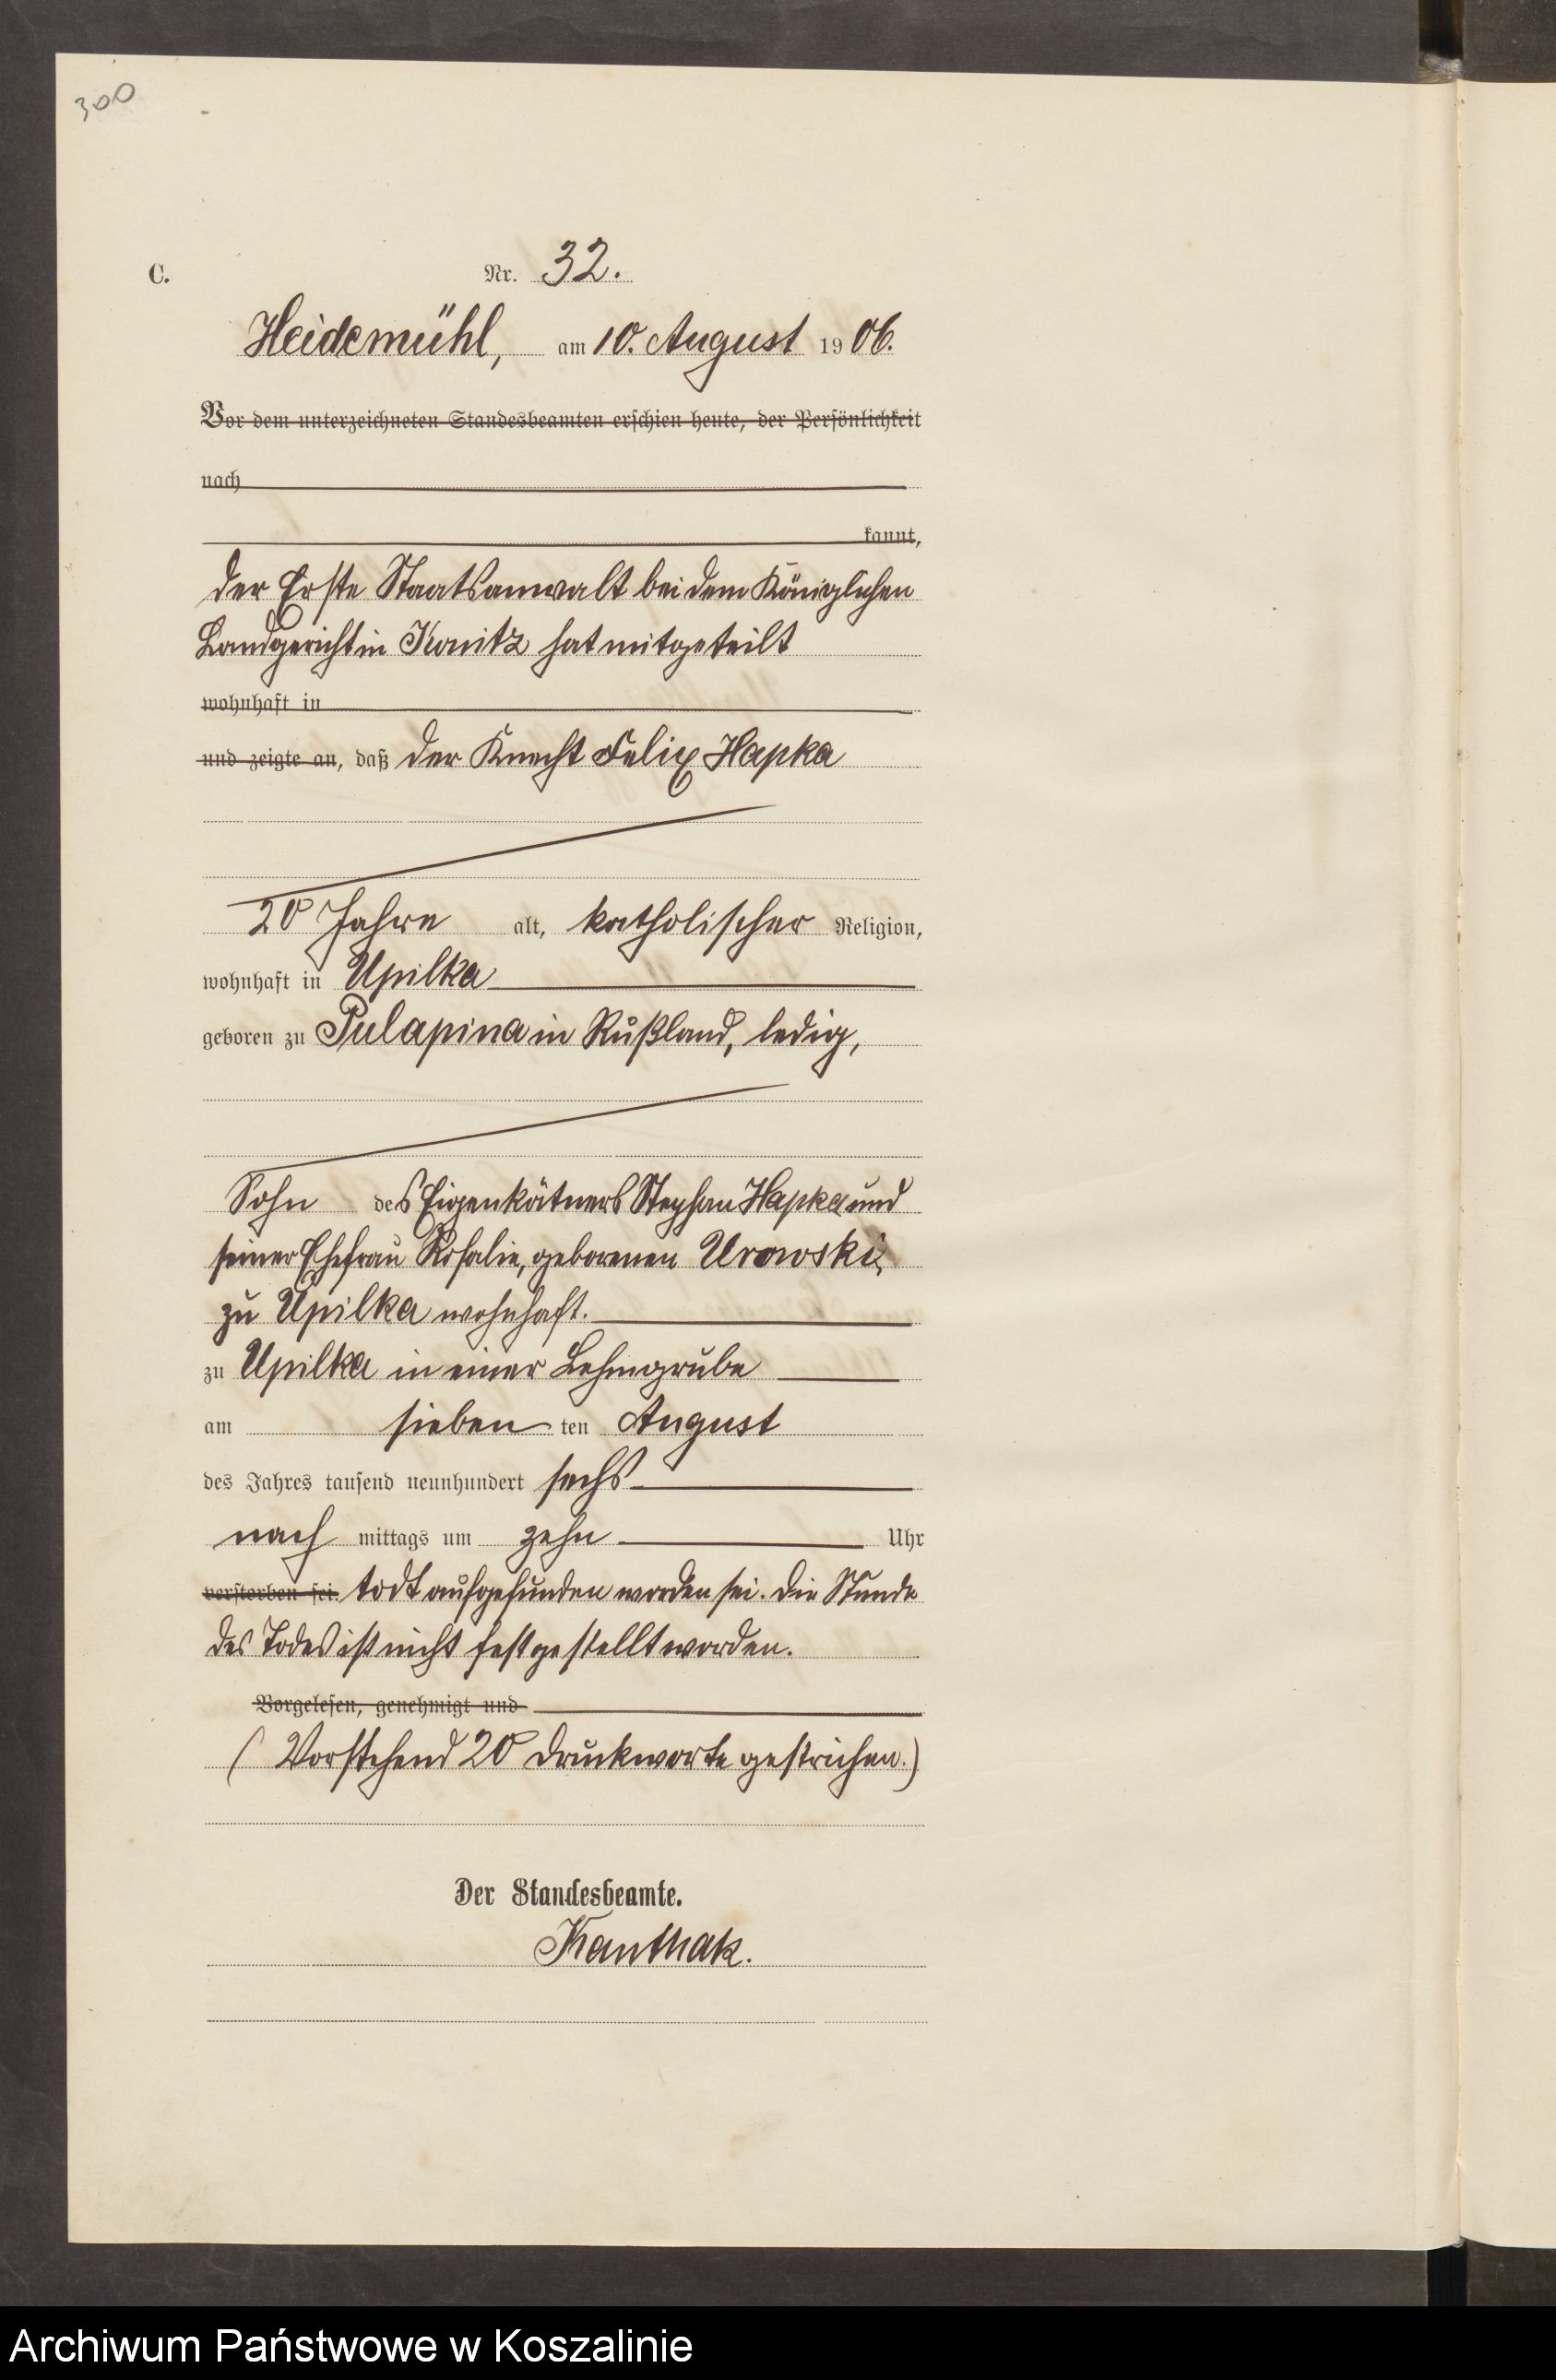 300
C. Nr. 32.
Heidemühl, am 10. August 1906.
Vor dem unterzeichneten Standesbeamten erschien heute, der Persönlichkeit
nach
kannt,
der Erste Staatsanwalt bei dem Königlichen
Landgericht in Konitz hat mitgeteilt
wohnhaft in
und zeigte an, daß der Knecht Felix Hapka
20 Jahre alt, katholischer Religion,
wohnhaft in Upilka
geboren zu Pulapina in Rußland, ledig,
Sohn des Eigenkätners Stephan Hapka und
seiner Ehefrau Rosalie, geborenen Urowski,
zu Upilka wohnhaft.
zu Upilka in einer Lehmgrube
am sieben ten August
des Jahres tausend neunhundert sechs
nach mittags um zehn Uhr
verstorben sei. todt aufgefunden worden sei. Die Stunde
des Todes ist nicht festgestellt worden.
Vorgelesen, genehmigt und
(Vorstehend 20 Druckworte gestrichen.)
Der Standesbeamte.
Kanthak.
Archiwum Państwowe w Koszalinie